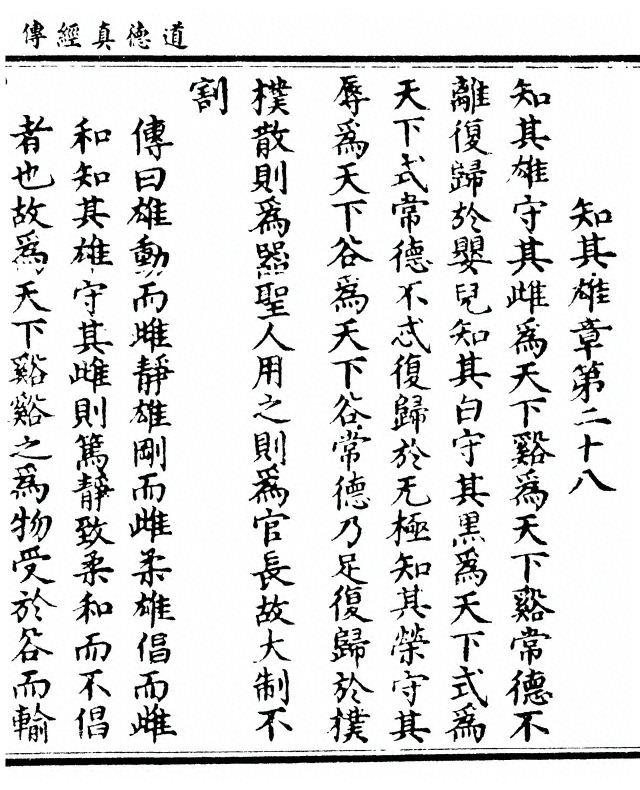 道德真經傳
知其雄章第二十八
知其雄守其雌爲天下谿爲天下谿常德不
離復歸於嬰兒知其白守其黑爲天下式爲
天下式常德不忒復歸於无極知其榮守其
辱爲天下谷爲天下谷常德乃足復歸於樸
樸散則爲器聖人用之則爲官長故大制不
割
傳曰雄動而雌靜雄剛而雌柔雄倡而雌
和知其雄守其雌則篤靜致柔和而不倡
者也故爲天下谿谿之爲物受於谷而輸